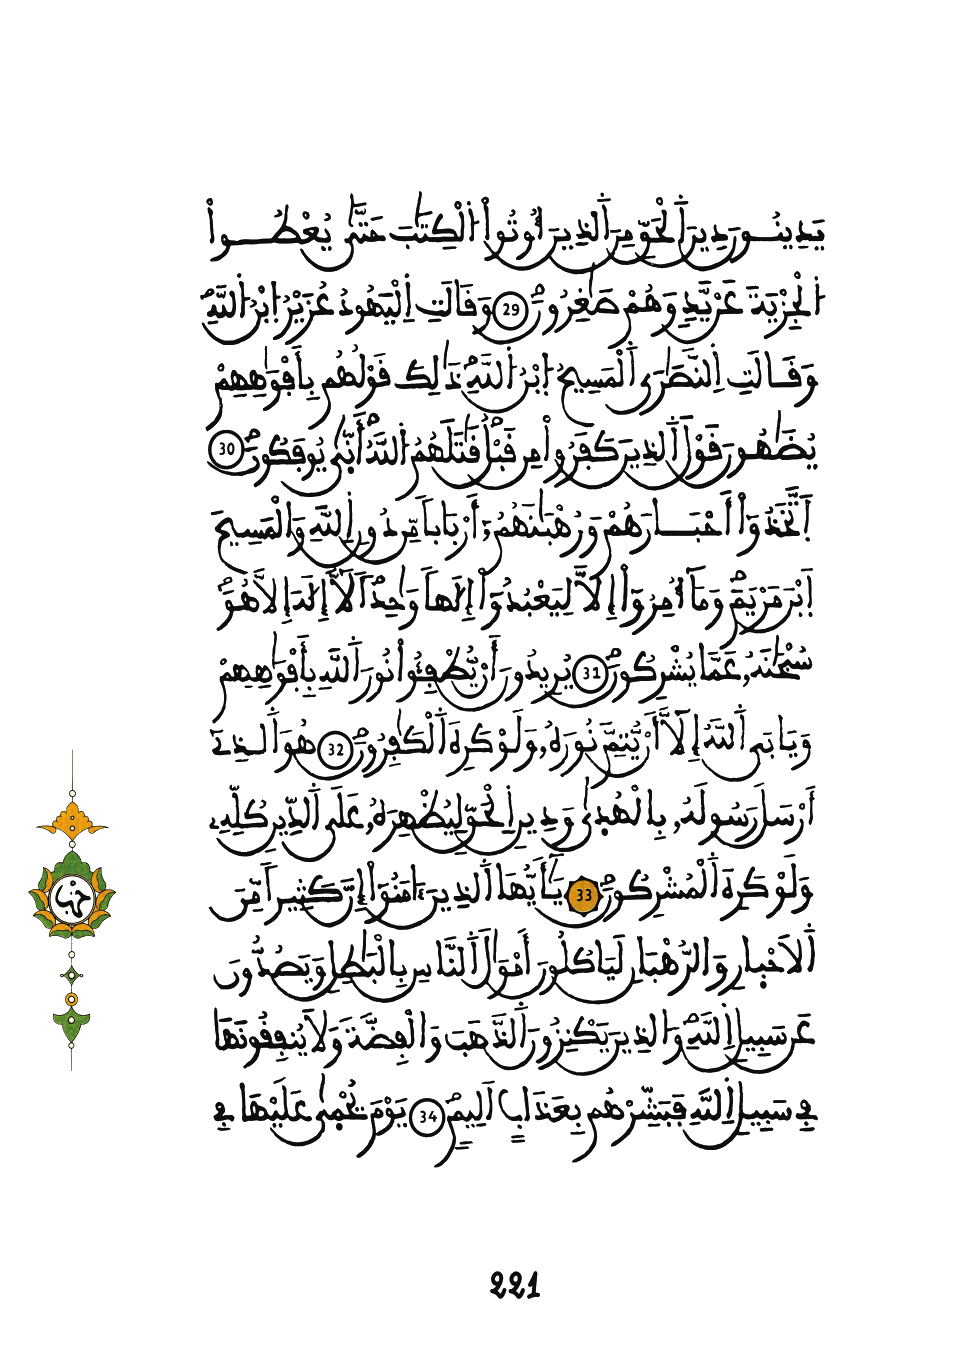 يَدِينُونَ دِينَ اَ۬لْحَقِّ مِنَ اَ۬لذِينَ أُوتُواْ اُ۬لْكِتَٰبَ حَتَّىٰ يُعْطُواْ
اُ۬لْجِزْيَةَ عَنْ يَّدٖ وَهُمْ صَٰغِرُونَۖ 29 وَقَالَتِ اِ۬لْيَهُودُ عُزَيْرُ اُ۪بْنُ اُ۬للَّهِۖ
وَقَالَتِ اِ۬لنَّصَٰرَى اَ۬لْمَسِيحُ اُ۪بْنُ اُ۬للَّهِۖ ذَٰلِكَ قَوْلُهُم بِأَفْوَٰهِهِمْ
يُضَٰهُونَ قَوْلَ اَ۬لذِينَ كَفَرُواْ مِن قَبْلُۖ قَٰتَلَهُمُ اُ۬للَّهُۖ أَنّ۪ىٰ يُوفَكُونَۖ 30
اَ۪تَّخَذُوٓاْ أَحْبَارَهُمْ وَرُهْبَٰنَهُمُۥٓ أَرْبَاباٗ مِّن دُونِ اِ۬للَّهِ وَالْمَسِيحَ
اَ۪بْنَ مَرْيَمَۖ وَمَآ أُمِرُوٓاْ إِلَّا لِيَعْبُدُوٓاْ إِلَٰهاٗ وَٰحِداٗۖ لَّآ إِلَٰهَ إِلَّا هُوَۖ
سُبْحَٰنَهُۥ عَمَّا يُشْرِكُونَۖ 31 يُرِيدُونَ أَنْ يُّطْفِـُٔواْ نُورَ اَ۬للَّهِ بِأَفْوَٰهِهِمْ
وَيَابَى اَ۬للَّهُ إِلَّآ أَنْ يُّتِمَّ نُورَهُۥ وَلَوْ كَرِهَ اَ۬لْكَٰفِرُونَۖ 32 هُوَ اَ۬لذِےٓ
أَرْسَلَ رَسُولَهُۥ بِالْهُد۪ىٰ وَدِينِ اِ۬لْحَقِّ لِيُظْهِرَهُۥ عَلَى اَ۬لدِّينِ كُلِّهِۦ
وَلَوْ كَرِهَ اَ۬لْمُشْرِكُونَۖ 33 يَٰٓأَيُّهَا اَ۬لذِينَ ءَامَنُوٓاْ إِنَّ كَثِيراٗ مِّنَ
اَ۬لَاحْبِارِ وَالرُّهْبَانِ لَيَاكُلُونَ أَمْوَٰلَ اَ۬لنَّاسِ بِالْبَٰطِلِ وَيَصُدُّونَ
عَن سَبِيلِ اِ۬للَّهِۖ وَالذِينَ يَكْنِزُونَ اَ۬لذَّهَبَ وَالْفِضَّةَ وَلَا يُنفِقُونَهَا
فِے سَبِيلِ اِ۬للَّهِ فَبَشِّرْهُم بِعَذَابٍ اَلِيمٖۖ 34 يَوْمَ يُحْم۪ىٰ عَلَيْهَا فِے
حزب
221